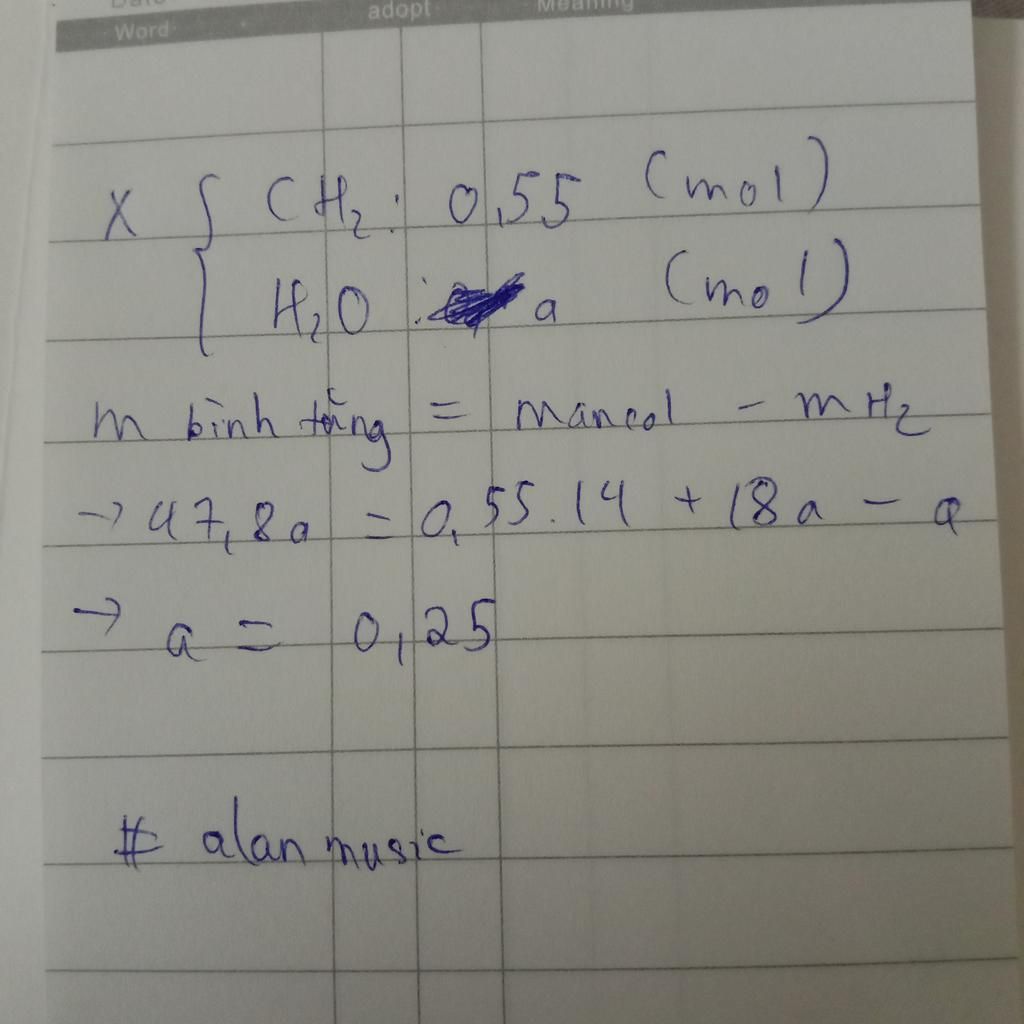 Word adopt Meaning
X { CH₂: 0,55 (mol)
H₂O : a (mol)
m bình tăng = mancol - mH₂
→ 47,8a = 0,55.14 + 18a - a
→ a = 0,25
# alan music